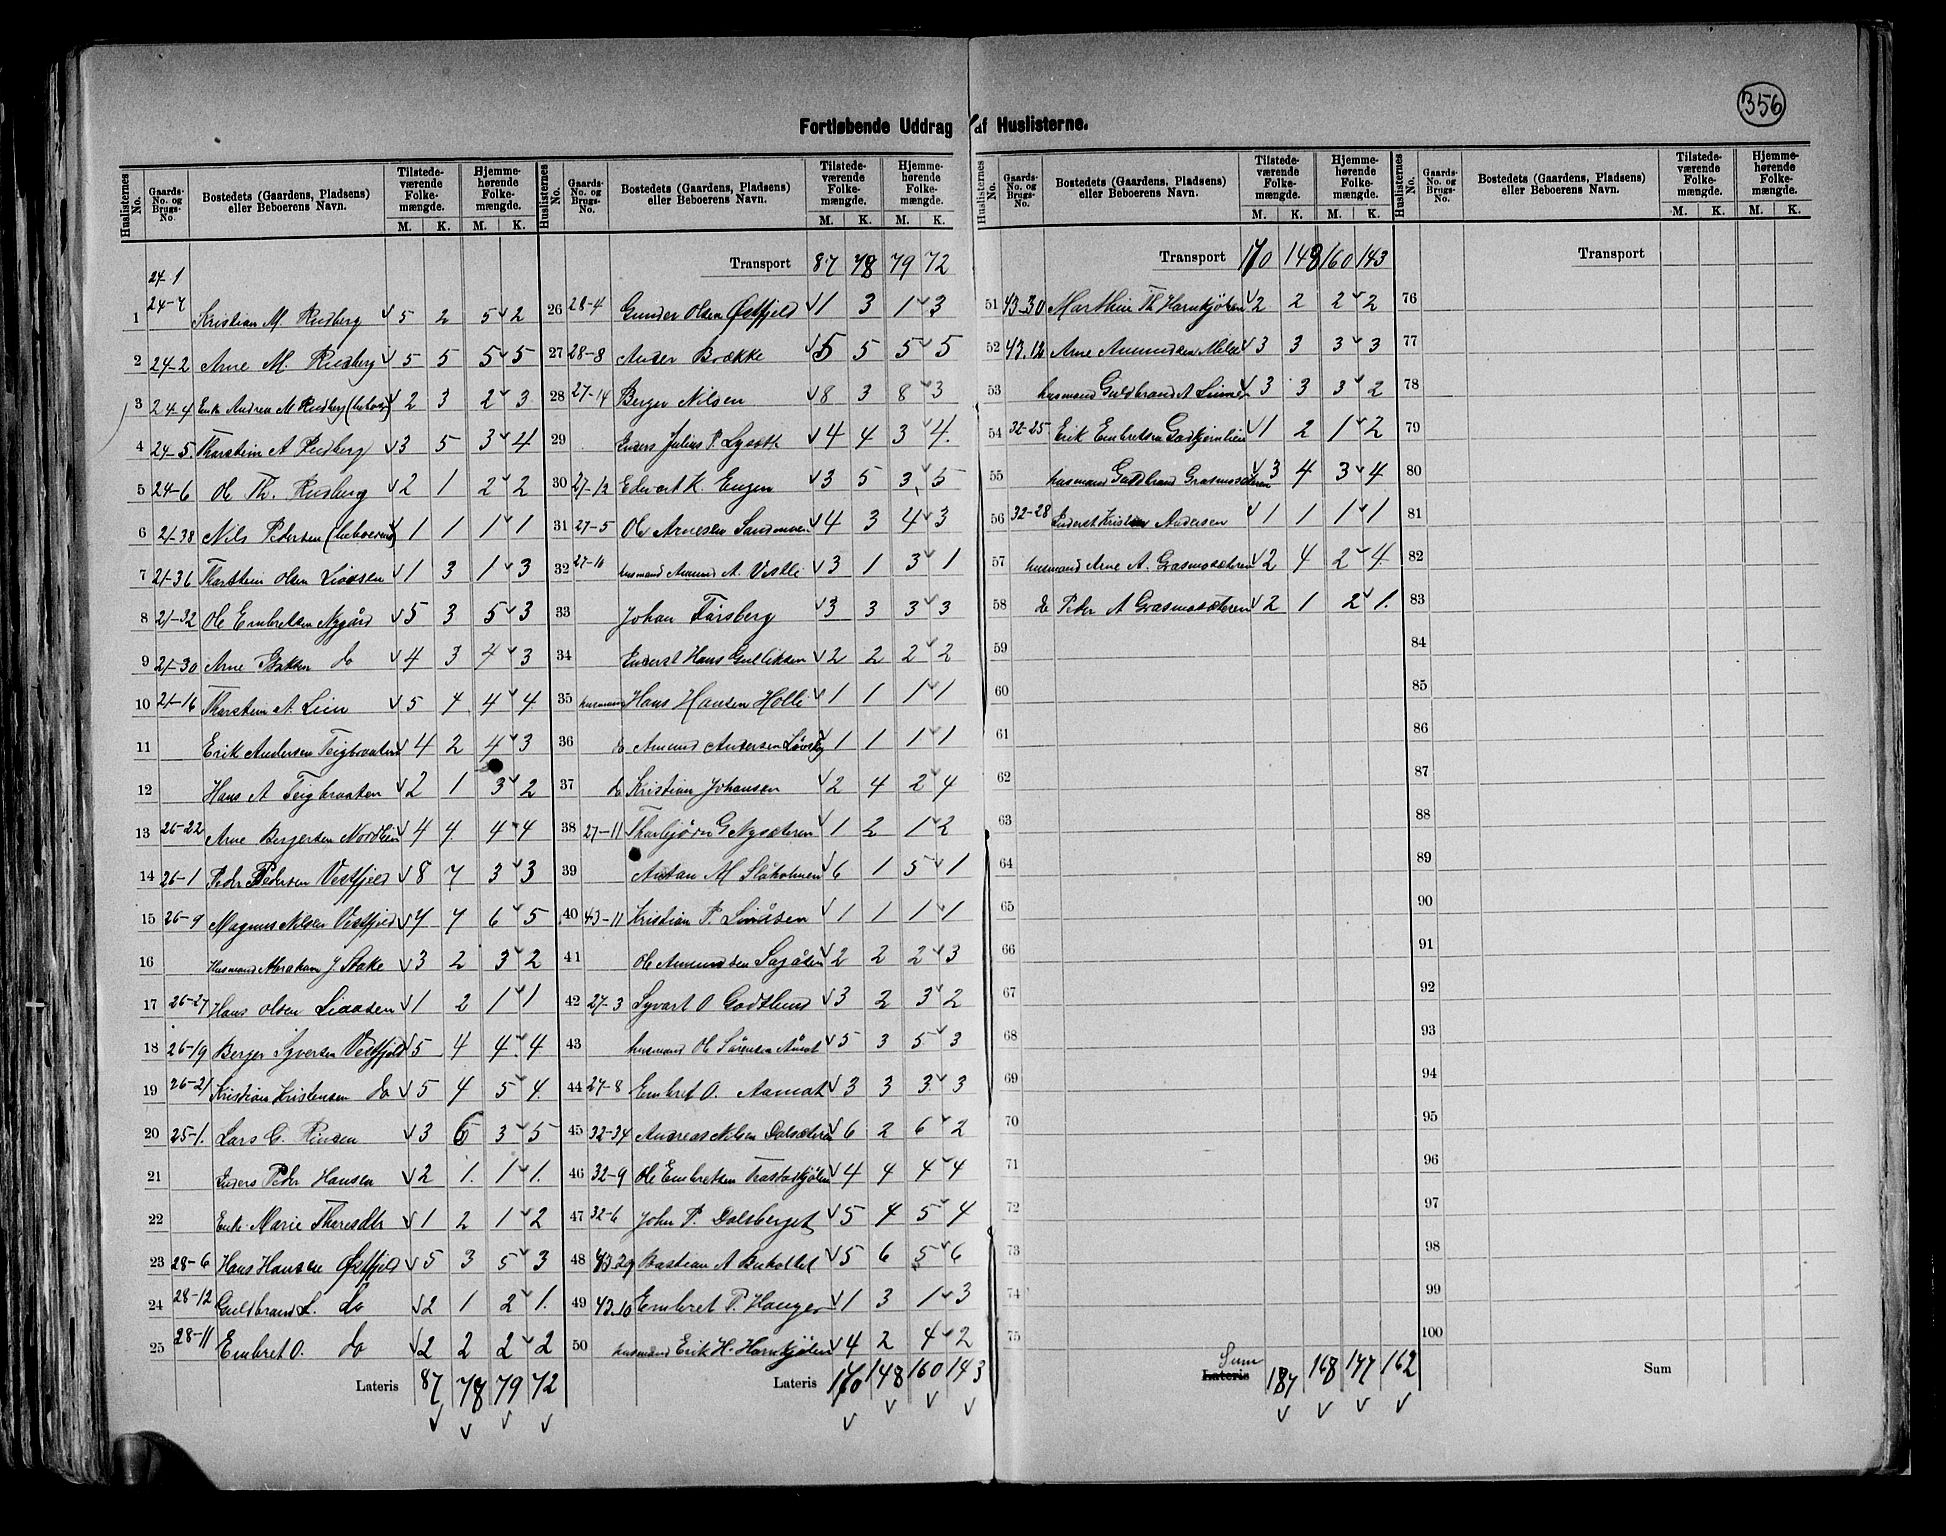 356
Fortløbende Uddrag af Huslisterne.
Huslisternes No. Gaards-No. og Brugs-No. Bostedets (Gaardens, Pladsens) eller Beboerens Navn. Tilstedeværende Folkemængde. M. K. Hjemmehørende Folkemængde. M. K.
24-1
1 24-7 Kristian M. Rudberg 5 2 5 2
2 24-2 Arne M. Rudberg 5 5 5 5
3 24-4 Enke Andrea M Rudberg 2 3 2 3
4 24-5. Thorstein A Rudberg 3 5 3 4
5 24-6 Ole Th. Rudberg 2 1 2 2
6 21-38 Nils Pedersen 1 1 1 1
7 21-36 Thorstein Olsen Liaasen 1 3 1 3
8 21-32 Ole Embretsen Nygård 5 3 5 3
9 21-30 Arne Bakken do 4 3 4 3
10 21-16 Thorstein A. Lien 5 4 4 4
11 Erik Andersen Teigbraaten 4 2 4 3
12 Hans A Teigbraaten 2 1 3 2
13 26-22 Arne Bergersen Nordlien 4 4 4 4
14 26-1 Peder Pedersen Vestfjeld 8 7 3 3
15 26-9 Magnus Nilsen Vestfjeld 7 7 6 5
16 Husmand Abraham J Stake 3 2 3 2
17 26-27 Hans Olsen Liaasen 1 2 1 1
18 26-19 Berger Syversen Vestfjeld 5 4 4 4
19 26-21 Kristian Kristensen do 5 4 5 4
20 25-1. Lars G. 3 6 3 5
21 Inders Peder Hansen 2 1 1 1
22 Enke Marie 1 2 1 2
23 28-6 Hans Hansen Østfjeld 5 3 5 3
24 28-12 Guldbrand L. do 2 1 2 1
25 28-11 Embret O. do 2 2 2 2
Lateris 87 78 79 72
Transport 87 78 79 72
26 28-4 Gunder Olsen Østfjeld 1 3 1 3
27 28-8 Ander Brække 5 5 5 5
28 27-14 Berger Nilsen 8 3 8 3
29 Inders Julius P. 4 4 3 4
30 27-12 Edvart K. Engen 3 5 3 5
31 27-5 Ole Arnesen Sandmoen 4 3 4 3
32 27-10 husmand Amund A. Vestli 3 1 3 1
33 Johan Forsberg 3 3 3 3
34 Inderst Hans Gulliksen 2 2 2 2
35 husmand Hans Hansen Holli 1 1 1 1
36 do Amund Andersen 1 1 1 1
37 do Kristian Johansen 2 4 2 4
38 27-11 Thorbjørn G Nysæteren 1 2 1 2
39 Antan M 6 1 5 1
40 43-11 Kristian P. 1 1 1 1
41 Ole Amundsen Sagåsen 2 2 2 3
42 27-3 Syvert O Godtlund 3 2 3 2
43 husmand Ole Sørensen 5 3 5 3
44 27-8 Embret O. Aamot 3 3 3 3
45 32-34 Andreas Nilsen Dalsæteren 6 2 6 2
46 32-9 Ole Embretsen 4 4 4 4
47 32-6 John P. Dalsberget 5 4 5 4
48 43-29 Bastian A 5 6 5 6
49 43-10 Embret P. Hanger 1 3 1 3
50 husmand Erik H. Harnkjølen 4 2 4 2
Lateris 170 148 160 143
Transport 170 148 160 143
51 43-30 Marthin Th Harnkjølen 2 2 2 2
52 43-12 Arne Amundsen 3 3 3 3
53 husmand Guldbrand A 3 3 3 2
54 32-25 Erik Embretsen 1 2 1 2
55 husmand Guldbrand Grasmosæteren 3 4 3 4
56 32-28 Inderst Kristian Andersen 1 1 1 1
57 husmand Arne A. Grasmosæteren 2 4 2 4
58 do Peder A Grasmosæteren 2 1 2 1
59
60
61
62
63
64
65
66
67
68
69
70
71
72
73
74
75
Sum
Lateris 187 168 177 162
Transport
76
77
78
79
80
81
82
83
84
85
86
87
88
89
90
91
92
93
94
95
96
97
98
99
100
Sum